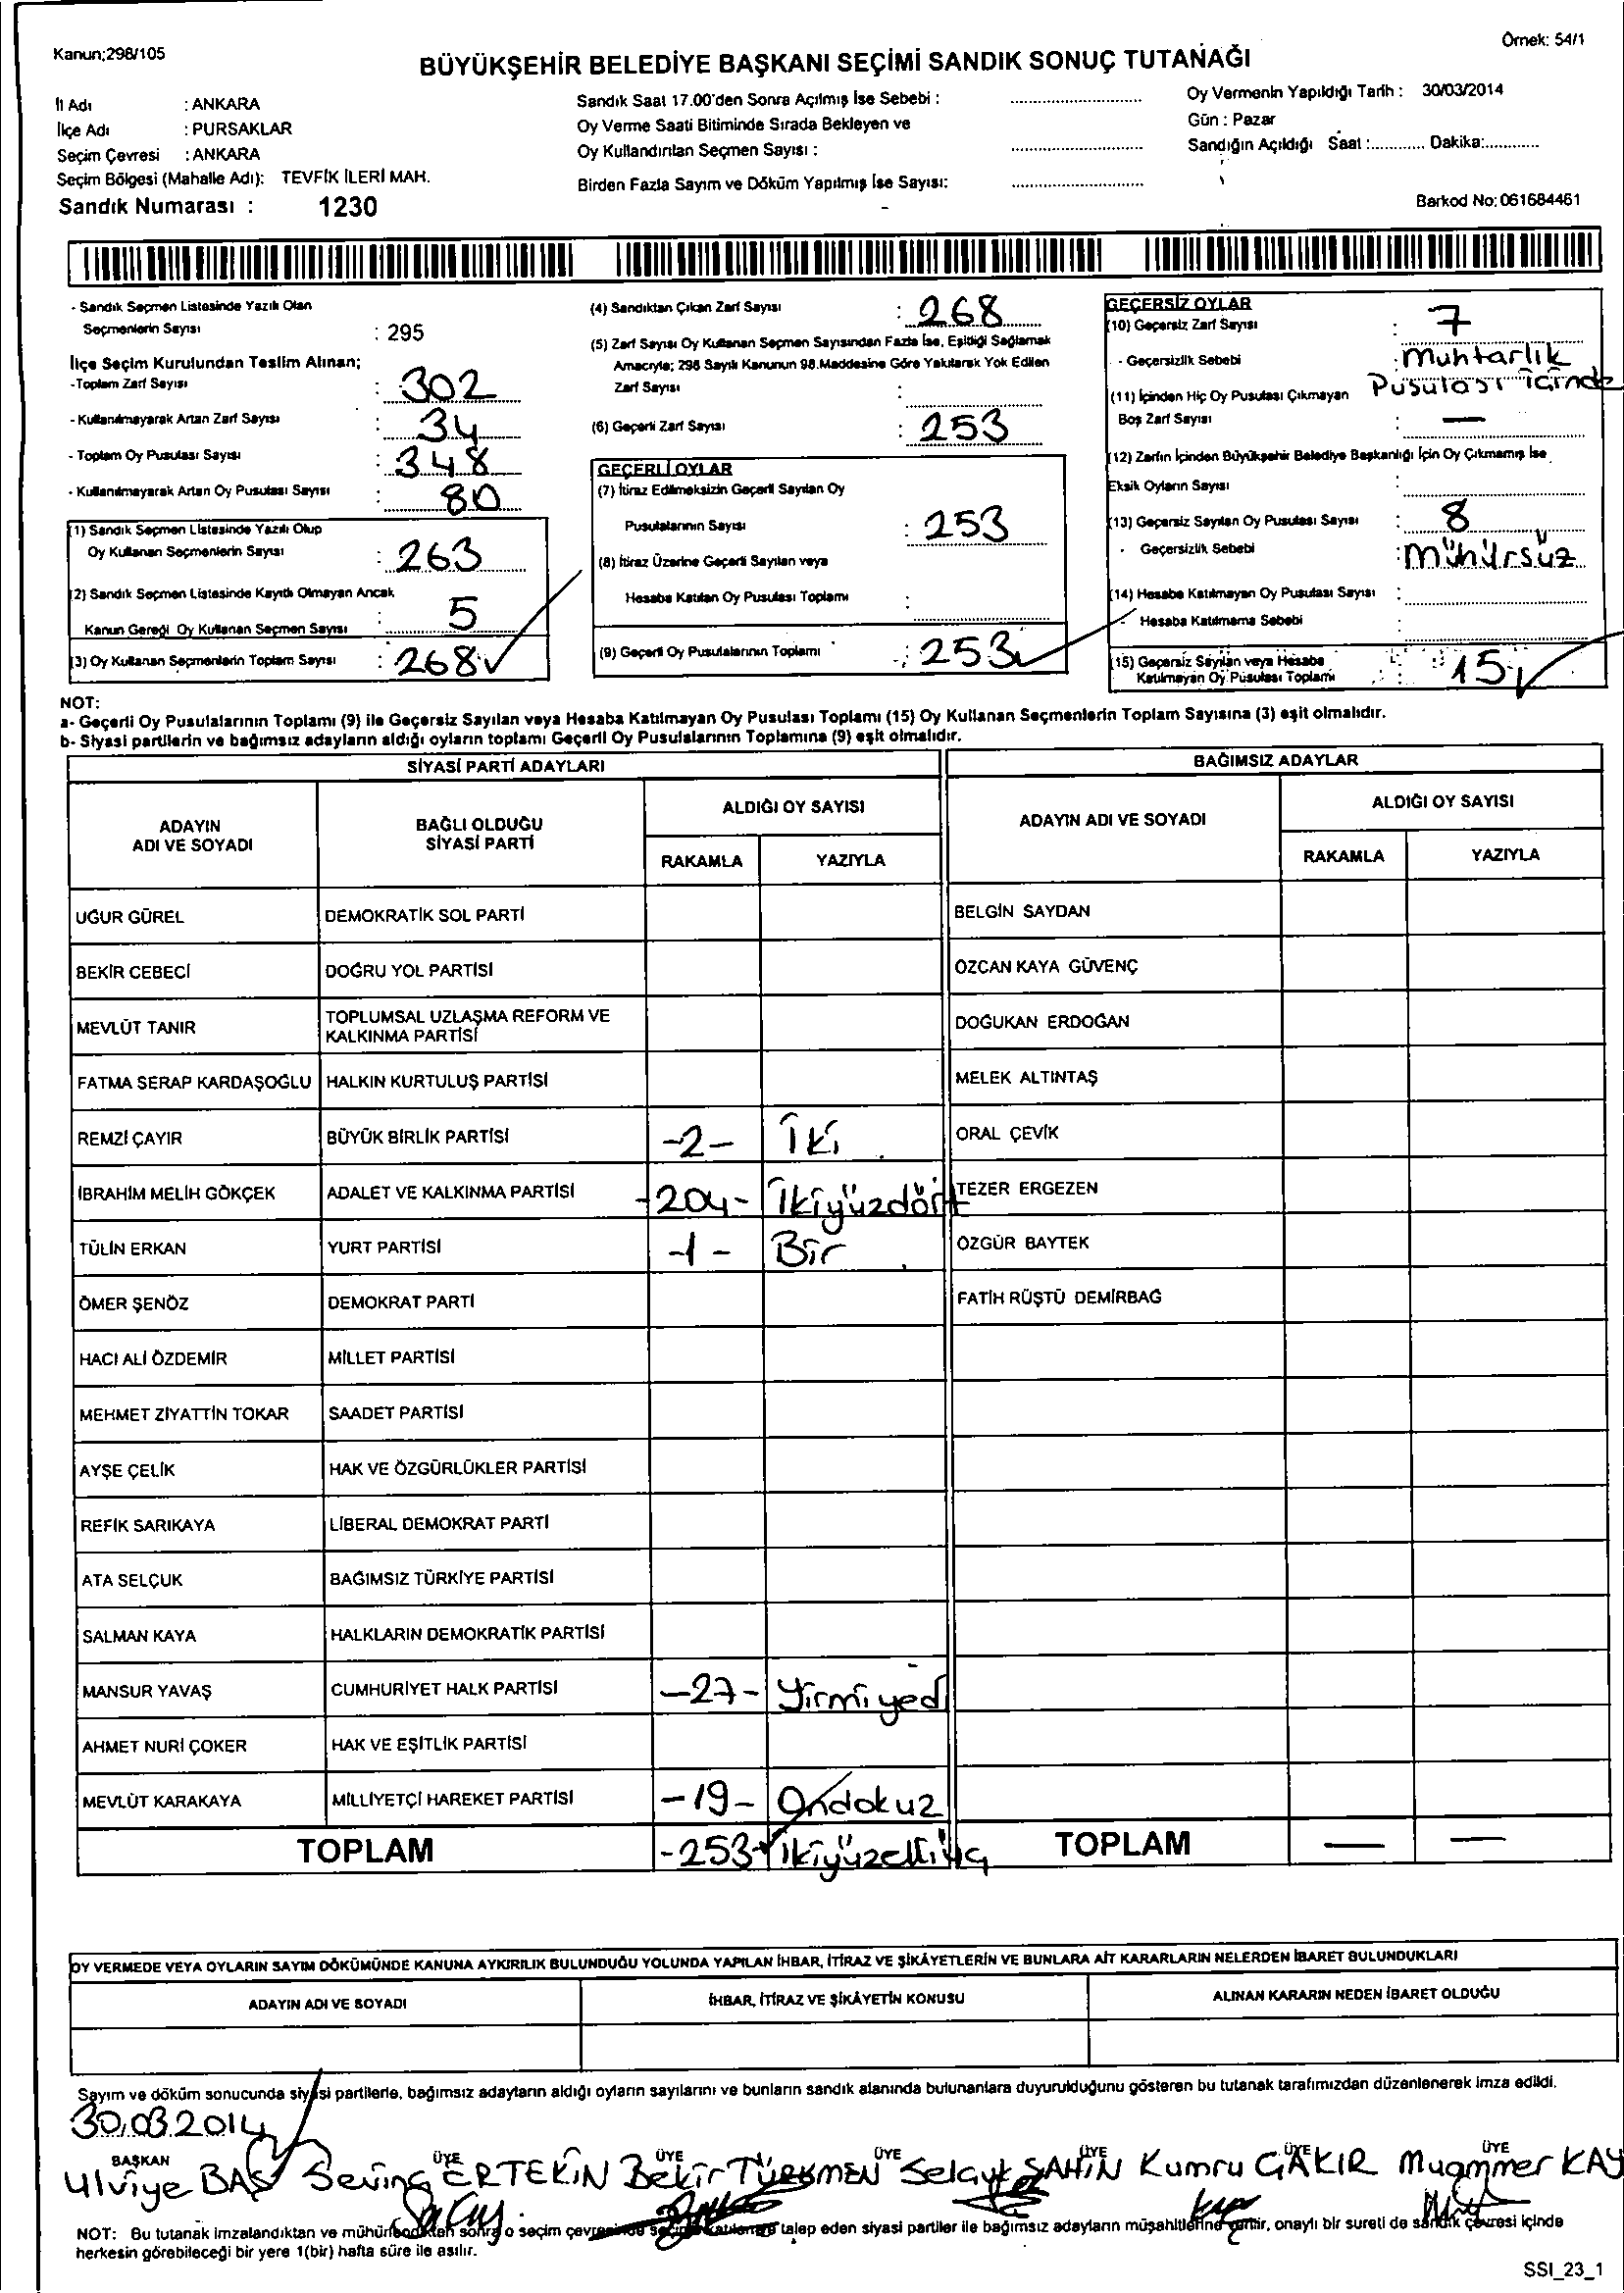 Kanun;298/105
Örnek: 54/1
BÜYÜKŞEHİR BELEDİYE BAŞKANI SEÇİMİ SANDIK SONUÇ TUTANAĞI
İl Adı : ANKARA
İlçe Adı : PURSAKLAR
Seçim Çevresi : ANKARA
Seçim Bölgesi (Mahalle Adı): TEVFİK İLERİ MAH.
Sandık Numarası : 1230
Sandık Saat 17.00'den Sonra Açılmış İse Sebebi :
Oy Verme Saati Bitiminde Sırada Bekleyen ve
Oy Kullandırılan Seçmen Sayısı :
Birden Fazla Sayım ve Döküm Yapılmış İse Sayısı:
Oy Vermenin Yapıldığı Tarih : 30/03/2014
Gün : Pazar
Sandığın Açıldığı Saat :............ Dakika:............
Barkod No: 061684461
- Sandık Seçmen Listesinde Yazılı Olan
Seçmenlerin Sayısı : 295
İlçe Seçim Kurulundan Teslim Alınan;
-Toplam Zarf Sayısı : 302
- Kullanılmayarak Artan Zarf Sayısı : 34
- Toplam Oy Pusulası Sayısı : 348
- Kullanılmayarak Artan Oy Pusulası Sayısı : 80
(1) Sandık Seçmen Listesinde Yazılı Olup
Oy Kullanan Seçmenlerin Sayısı : 263
(2) Sandık Seçmen Listesinde Kayıtlı Olmayan Ancak
Kanun Gereği Oy Kullanan Seçmen Sayısı : 5
(3) Oy Kullanan Seçmenlerin Toplam Sayısı : 268
(4) Sandıktan Çıkan Zarf Sayısı : 268
(5) Zarf Sayısı Oy Kullanan Seçmen Sayısından Fazla İse, Eşitliği Sağlamak
Amacıyla; 298 Sayılı Kanunun 98.Maddesine Göre Yakılarak Yok Edilen
Zarf Sayısı :
(6) Geçerli Zarf Sayısı : 253
GEÇERLİ OYLAR
(7) İtiraz Edilmeksizin Geçerli Sayılan Oy
Pusulalarının Sayısı : 253
(8) İtiraz Üzerine Geçerli Sayılan veya
Hesaba Katılan Oy Pusulası Toplamı :
(9) Geçerli Oy Pusulalarının Toplamı : 253
GEÇERSİZ OYLAR
(10) Geçersiz Zarf Sayısı : 7
- Geçersizlik Sebebi : Muhtarlık
Pusulası içinde
(11) İçinden Hiç Oy Pusulası Çıkmayan
Boş Zarf Sayısı : —
(12) Zarfın İçinden Büyükşehir Belediye Başkanlığı İçin Oy Çıkmamış İse
Eksik Oyların Sayısı :
(13) Geçersiz Sayılan Oy Pusulası Sayısı : 8
- Geçersizlik Sebebi : mühürsüz
(14) Hesaba Katılmayan Oy Pusulası Sayısı :
- Hesaba Katılmama Sebebi :
(15) Geçersiz Sayılan veya Hesaba
Katılmayan Oy Pusulası Toplamı : 15
NOT:
a- Geçerli Oy Pusulalarının Toplamı (9) ile Geçersiz Sayılan veya Hesaba Katılmayan Oy Pusulası Toplamı (15) Oy Kullanan Seçmenlerin Toplam Sayısına (3) eşit olmalıdır.
b- Siyasi partilerin ve bağımsız adayların aldığı oyların toplamı Geçerli Oy Pusulalarının Toplamına (9) eşit olmalıdır.
SİYASİ PARTİ ADAYLARI
BAĞIMSIZ ADAYLAR
ADAYIN ADI VE SOYADI
BAĞLI OLDUĞU SİYASİ PARTİ
ALDIĞI OY SAYISI
RAKAMLA YAZIYLA
ADAYIN ADI VE SOYADI
ALDIĞI OY SAYISI
RAKAMLA YAZIYLA
UĞUR GÜREL DEMOKRATİK SOL PARTİ BELGİN SAYDAN
BEKİR CEBECİ DOĞRU YOL PARTİSİ ÖZCAN KAYA GÜVENÇ
MEVLÜT TANIR TOPLUMSAL UZLAŞMA REFORM VE KALKINMA PARTİSİ DOĞUKAN ERDOĞAN
FATMA SERAP KARDAŞOĞLU HALKIN KURTULUŞ PARTİSİ MELEK ALTINTAŞ
REMZİ ÇAYIR BÜYÜK BİRLİK PARTİSİ -2- İki ORAL ÇEVİK
İBRAHİM MELİH GÖKÇEK ADALET VE KALKINMA PARTİSİ -204- İkiyüzdört TEZER ERGEZEN
TÜLİN ERKAN YURT PARTİSİ -1- Bir ÖZGÜR BAYTEK
ÖMER ŞENÖZ DEMOKRAT PARTİ FATİH RÜŞTÜ DEMİRBAĞ
HACI ALİ ÖZDEMİR MİLLET PARTİSİ
MEHMET ZİYATTİN TOKAR SAADET PARTİSİ
AYŞE ÇELİK HAK VE ÖZGÜRLÜKLER PARTİSİ
REFİK SARIKAYA LİBERAL DEMOKRAT PARTİ
ATA SELÇUK BAĞIMSIZ TÜRKİYE PARTİSİ
SALMAN KAYA HALKLARIN DEMOKRATİK PARTİSİ
MANSUR YAVAŞ CUMHURİYET HALK PARTİSİ -27- Yirmiyedi
AHMET NURİ ÇOKER HAK VE EŞİTLİK PARTİSİ
MEVLÜT KARAKAYA MİLLİYETÇİ HAREKET PARTİSİ -19- Ondokuz
TOPLAM -253- ikiyüzelliüç TOPLAM — —
OY VERMEDE VEYA OYLARIN SAYIM DÖKÜMÜNDE KANUNA AYKIRILIK BULUNDUĞU YOLUNDA YAPILAN İHBAR, İTİRAZ VE ŞİKÂYETLERİN VE BUNLARA AİT KARARLARIN NELERDEN İBARET BULUNDUKLARI
ADAYIN ADI VE SOYADI İHBAR, İTİRAZ VE ŞİKÂYETİN KONUSU ALINAN KARARIN NEDEN İBARET OLDUĞU
Sayım ve döküm sonucunda siyasi partilerle, bağımsız adayların aldığı oyların sayılarını ve bunların sandık alanında bulunanlara duyurulduğunu gösteren bu tutanak tarafımızdan düzenlenerek imza edildi.
30.03.2014
BAŞKAN ÜYE ÜYE ÜYE ÜYE ÜYE ÜYE
Ulviye BAŞ Sevinç ERTEKİN Bekir TÜRKMEN Selçuk ŞAHİN Kumru ÇAKIR Muammer KAY
NOT: Bu tutanak imzalandıktan ve mühürlendikten sonra o seçim çevresinde seçime katılarak talep eden siyasi partiler ile bağımsız adayların müşahitlerine verilir, onaylı bir sureti de sandık çevresi içinde
herkesin görebileceği bir yere 1(bir) hafta süre ile asılır.
SSI_23_1